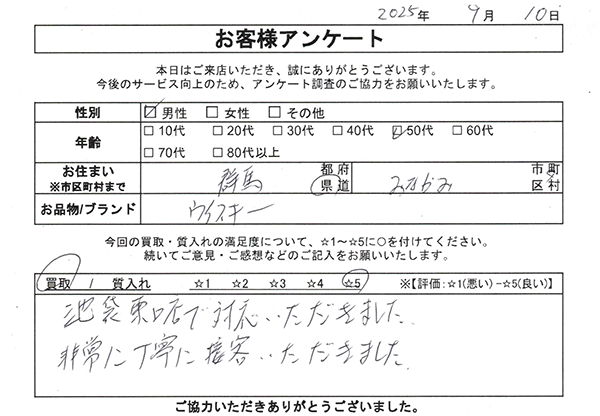 2025年 9月 10日
お客様アンケート
本日はご来店いただき、誠にありがとうございます。
今後のサービス向上のため、アンケート調査のご協力をお願いいたします。
性別 ☑男性 □女性 □その他
年齢 □10代 □20代 □30代 □40代 ☑50代 □60代
□70代 □80代以上
お住まい
※市区町村まで
群馬 都府県道 みなかみ 市町区村
お品物/ブランド ウイスキー
今回の買取・質入れの満足度について、☆1～☆5に○を付けてください。
続いてご意見・ご感想などのご記入をお願いいたします。
買取 / 質入れ ☆1 ☆2 ☆3 ☆4 ☆5 ※【評価:☆1(悪い)-☆5(良い)】
池袋東口店で対応いただきました.
非常に丁寧に接客いただきました.
ご協力いただきありがとうございました。